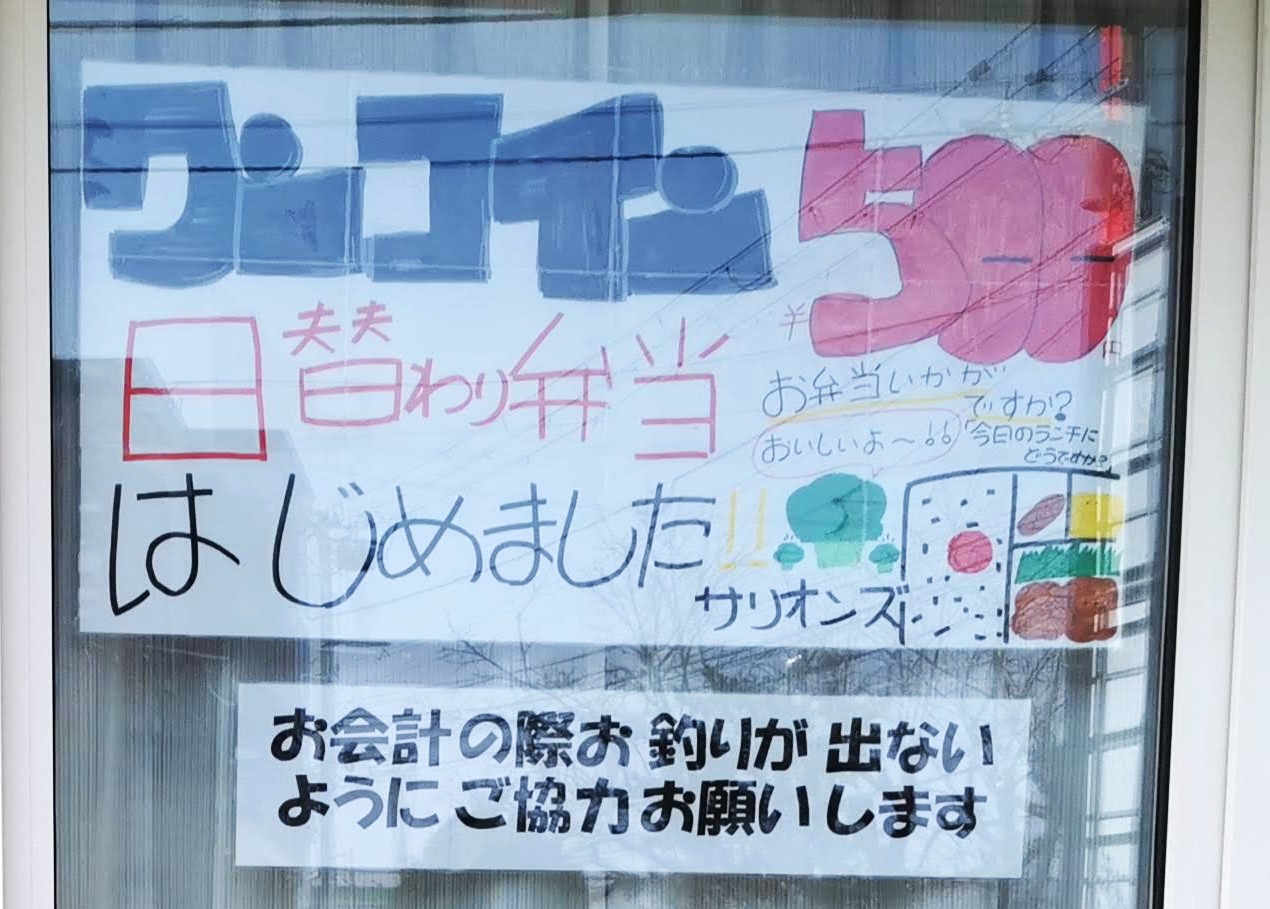 ワンコイン
¥500円
日替わり弁当
はじめました!!
お弁当いかが
ですか?
おいしいよ〜!!
「今日のランチに
どうですか?」
サリオンズ
お会計の際お釣りが出ない
ようにご協力お願いします